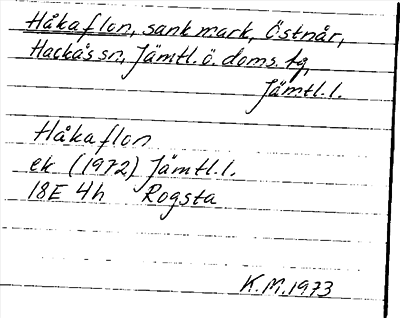 Håkaflon, sank mark, Östnår,
Hackås sn, Jämtl. ö. doms. tg,
Jämtl. l.
Håkaflon
ek (1972) Jämtl. l.
18E 4h Rogsta
K.M. 1973